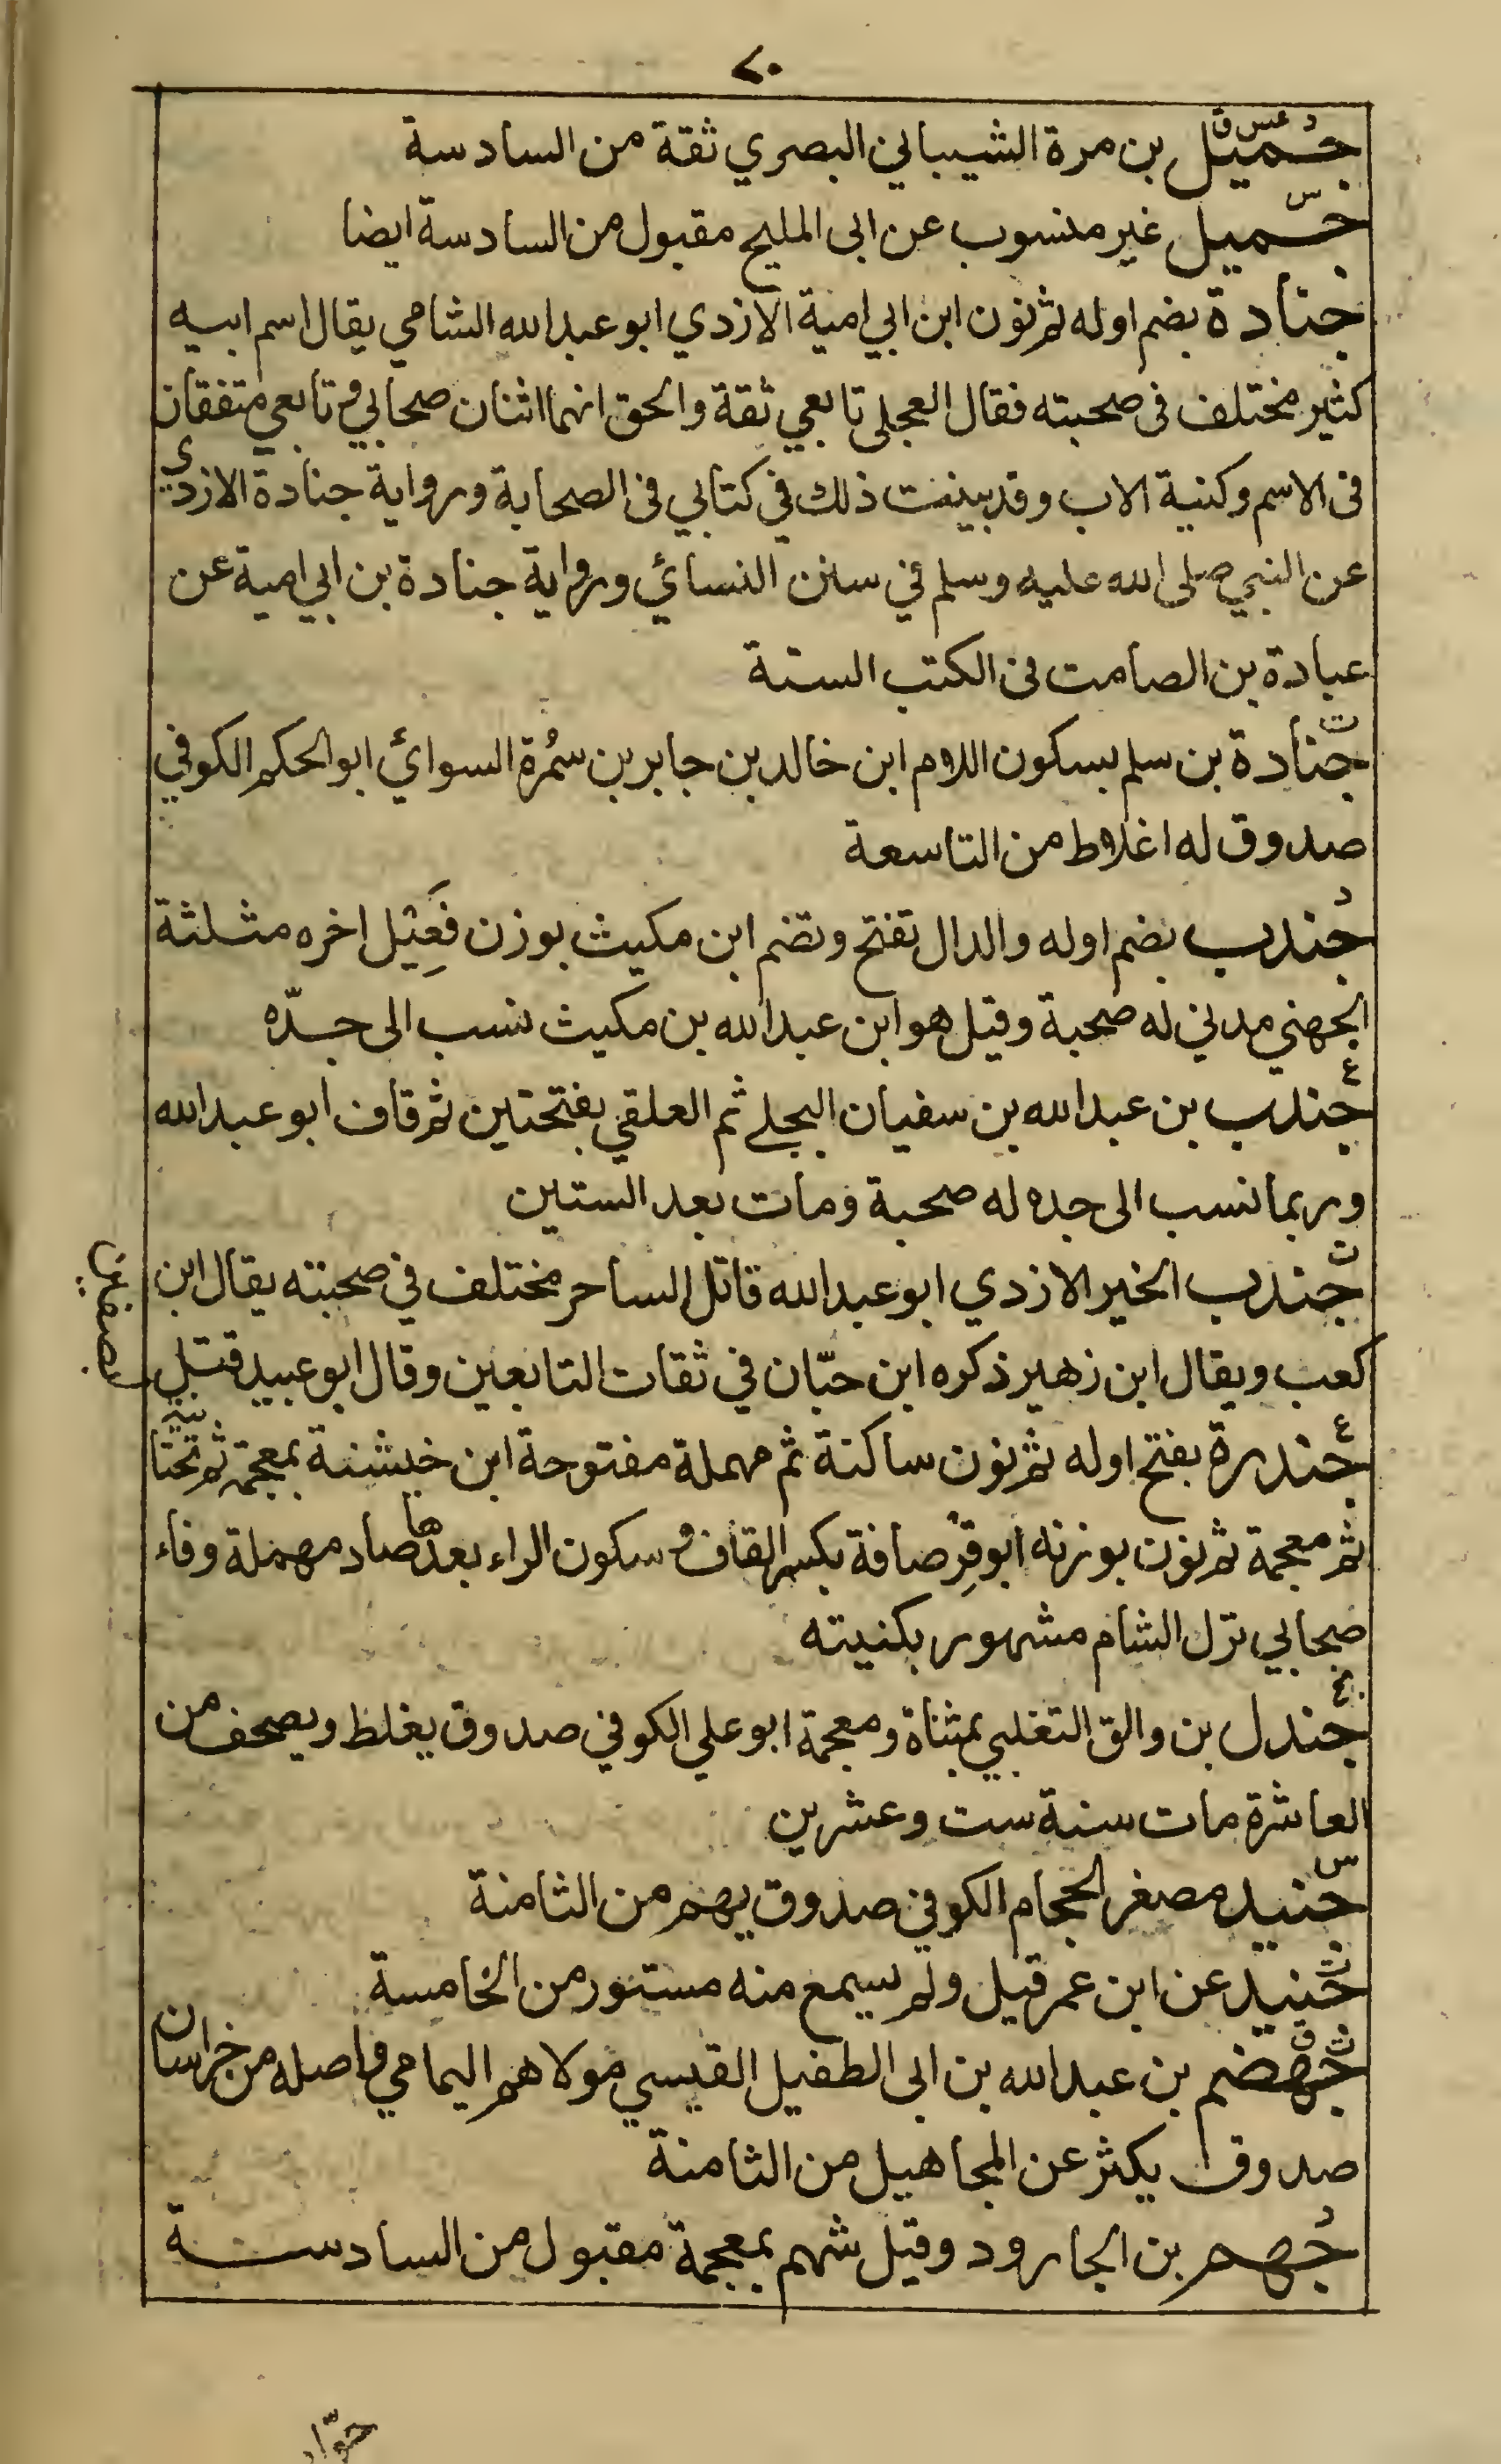 ٧٠
د عس ق
جميل بن مرة الشيباني البصري ثقة من السادسة
س
جميل غير منسوب عن ابى المليح مقبول من السادسة ايضا
جنادة بضم اوله ثم نون ابن ابي امية الازدي ابو عبد الله الشامي يقال اسم ابيه
كثير مختلف فى صحبته فقال العجلي تابعي ثقة والحق انهما اثنان صحابي وتابعي متفقان
فى الاسم وكنية الاب وقد بينت ذلك في كتابي فى الصحابة ورواية جنادة الازدي
عن النبي صلى الله عليه وسلم في سنن النسائي ورواية جنادة بن ابي امية عن
عبادة بن الصامت فى الكتب الستة
ت
جنادة بن سلم بسكون اللام ابن خالد بن جابر بن سمُرة السوائي ابو الحكم الكوفي
صدوق له اغلاط من التاسعة
د
جندب بضم اوله والدال تفتح وتضم ابن مكيث بوزن فَعِيْل اخره مثلثة
الجهني مدني له صحبة وقيل هو ابن عبد الله بن مكيث نسب الى جدّه
ع
جندب بن عبد الله بن سفيان البجلي ثم العلقي بفتحتين ثم قاف ابو عبد الله
وربما نسب الى جده له صحبة ومات بعد الستين
ت
جندب الخير الازدي ابو عبد الله قاتل الساحر مختلف في صحبته يقال ابن
كعب ويقال ابن زهير ذكره ابن حبّان في ثقات التابعين وقال ابو عبيد قتل
بصفين
ع
جندرة بفتح اوله ثم نون ساكنة ثم مهملة مفتوحة ابن خيشنة بمعجمة ثم تحتانية
ثم معجمة ثم نون بوزنه ابو قِرْصافة بكسر القاف وسكون الراء بعدها صاد مهملة وفاء
صحابي نزل الشام مشهور بكنيته
بخ
جندل بن والق التغلبي بمثناة ومعجمة ابو علي الكوفي صدوق يغلط ويصحف من
العاشرة مات سنة ست وعشرين
س
جنيد مصغر الحجام الكوفي صدوق يهم من الثامنة
ت
جنيد عن ابن عمر قيل ولم يسمع منه مستور من الخامسة
ت ق
جهضم بن عبد الله بن ابى الطفيل القيسي مولاهم اليمامي واصله من خراسان
صدوق يكثر عن المجاهيل من الثامنة
د
جهم بن الجارود وقيل شهم بمعجمة مقبول من السادسة
جوّاب